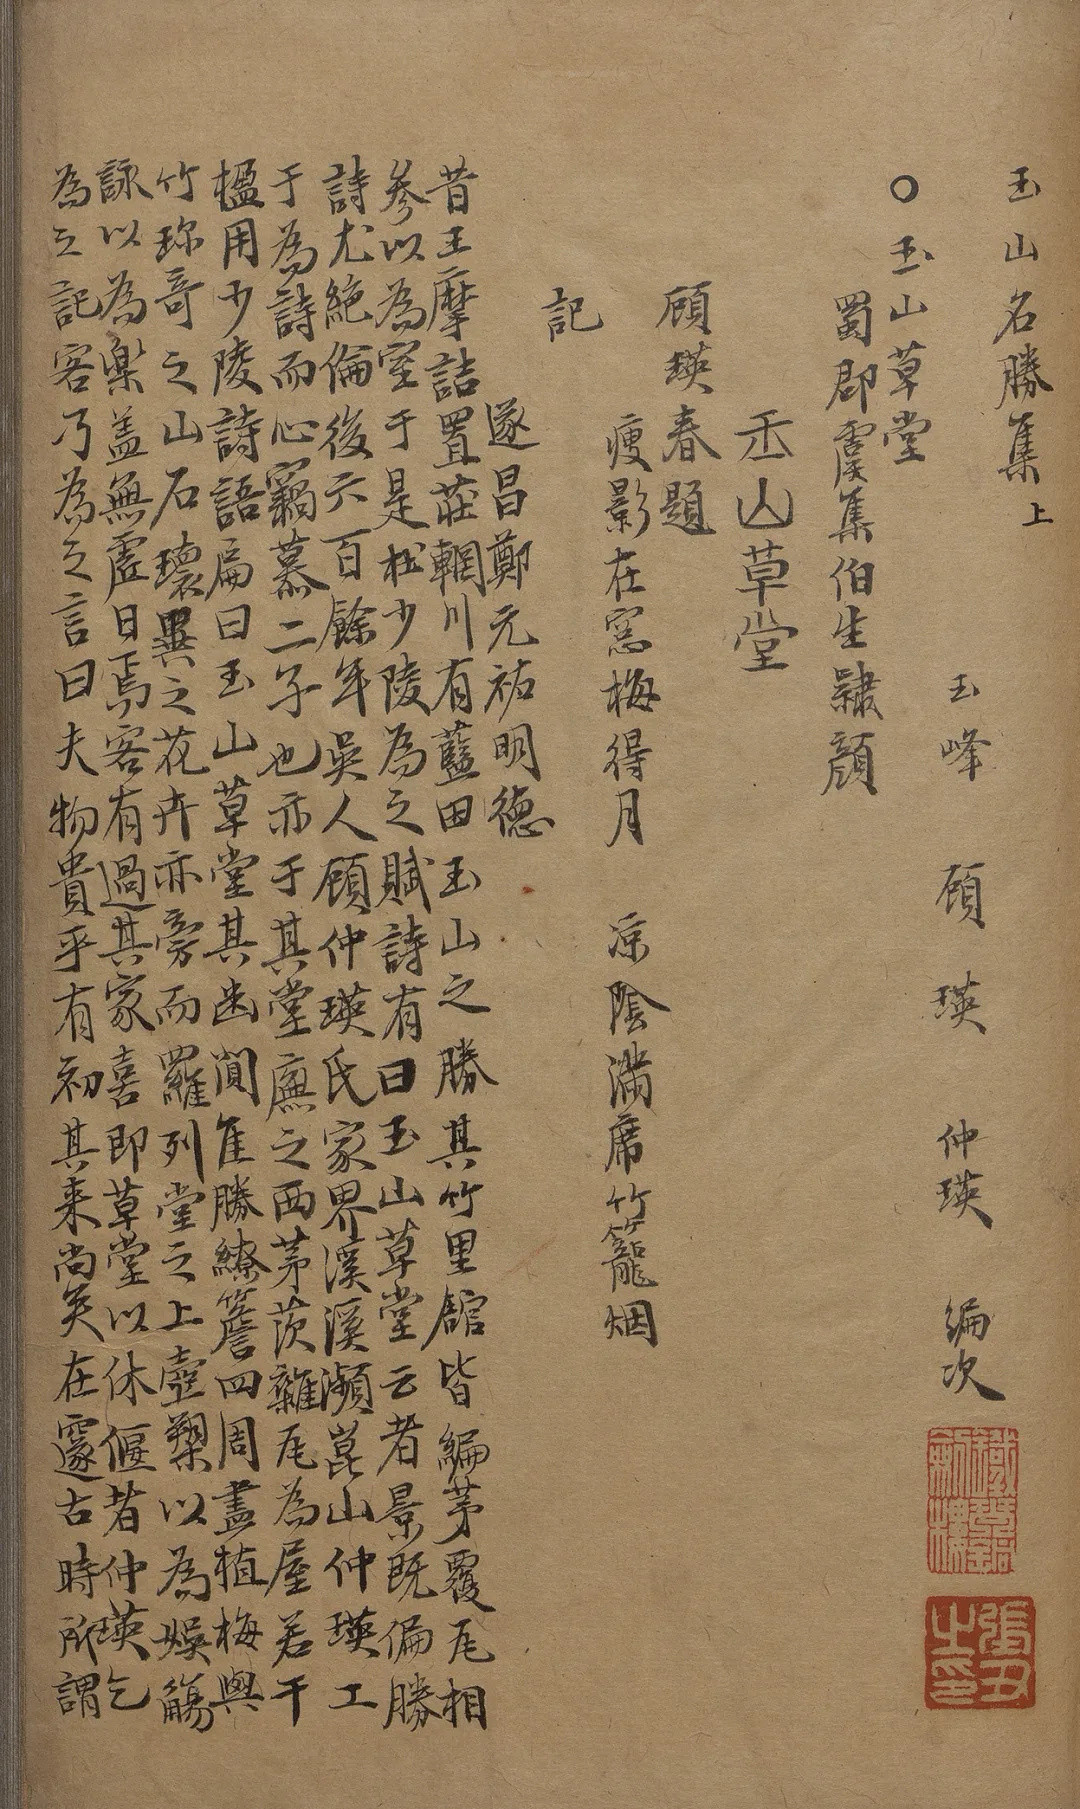 玉山名勝集上
玉峰 顧 瑛 仲瑛 編次
〇玉山草堂
蜀郡虞集伯生隸顔
玉山草堂
顧瑛春題
瘦影在窓梅得月 涼陰滿席竹籠烟
記
遂昌鄭元祐明德
昔王摩詰置莊輞川有藍田玉山之勝其竹里館皆編茅覆瓦相
參以為室于是杜少陵為之賦詩有曰玉山草堂云者景既偏勝
詩尤絶倫後六百餘年吳人顧仲瑛氏家界溪溪瀕崑山仲瑛工
于為詩而心竊慕二子也亦于其堂廡之西茅茨雜瓦為屋若干
楹用少陵詩語扁曰玉山草堂其幽閒隹勝繚簷四周盡植梅與
竹珎奇之山石瓌異之花卉亦旁而羅列堂之上壺槊以為娛觴
詠以為樂盖無虛日焉客有過其家喜即草堂以休偃者仲瑛乞
為之記客乃為之言曰夫物貴乎有初其来尚矣在邃古時所謂
張丑之印